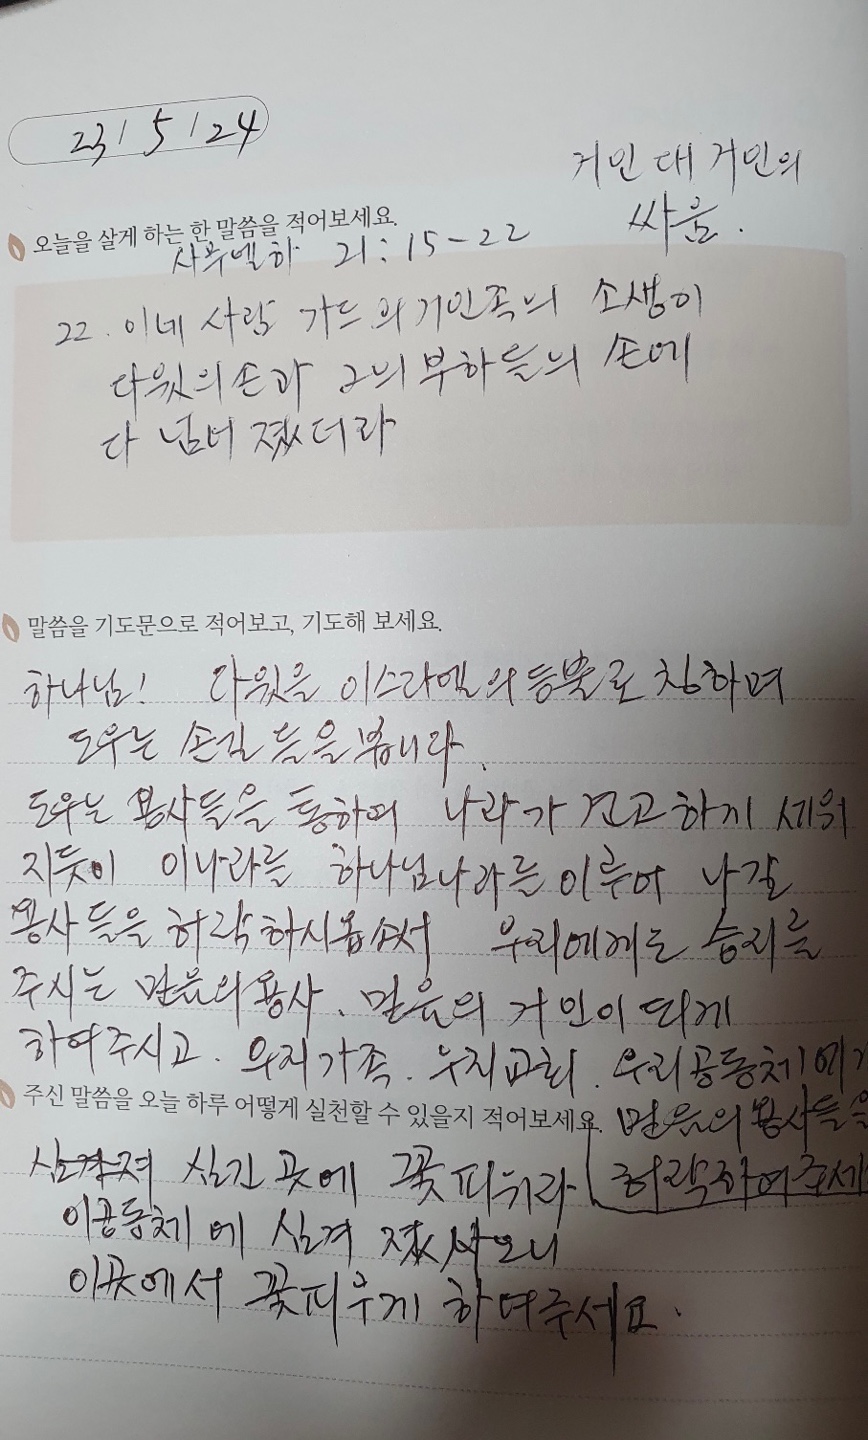 23 / 5 / 24
거인 대 거인의
싸움.
오늘을 살게 하는 한 말씀을 적어보세요.
사무엘하 21:15-22
22. 이네 사람 가드의 거인족의 소생이
다윗의 손과 그의 부하들의 손에
다 넘어 졌더라
말씀을 기도문으로 적어보고, 기도해 보세요.
하나님! 다윗을 이스라엘의 등불로 칭하며
도우는 손길 들을 봅니다.
도우는 용사들을 통하여 나라가 견고하게 세워
지듯이 이나라를 하나님나라를 이루어 나갈
용사들을 허락하시옵소서 우리에게도 승리를
주시는 믿음의용사. 믿음의 거인이 되게
하여주시고. 우리가족. 우리교회. 우리공동체에게
주신 말씀을 오늘 하루 어떻게 실천할 수 있을지 적어보세요.
믿음의 용사들을
허락하여주세
심긴 곳에 꽃피워라
이공동체에 심겨 졌사오니
이곳에서 꽃피우게 하여주세요.